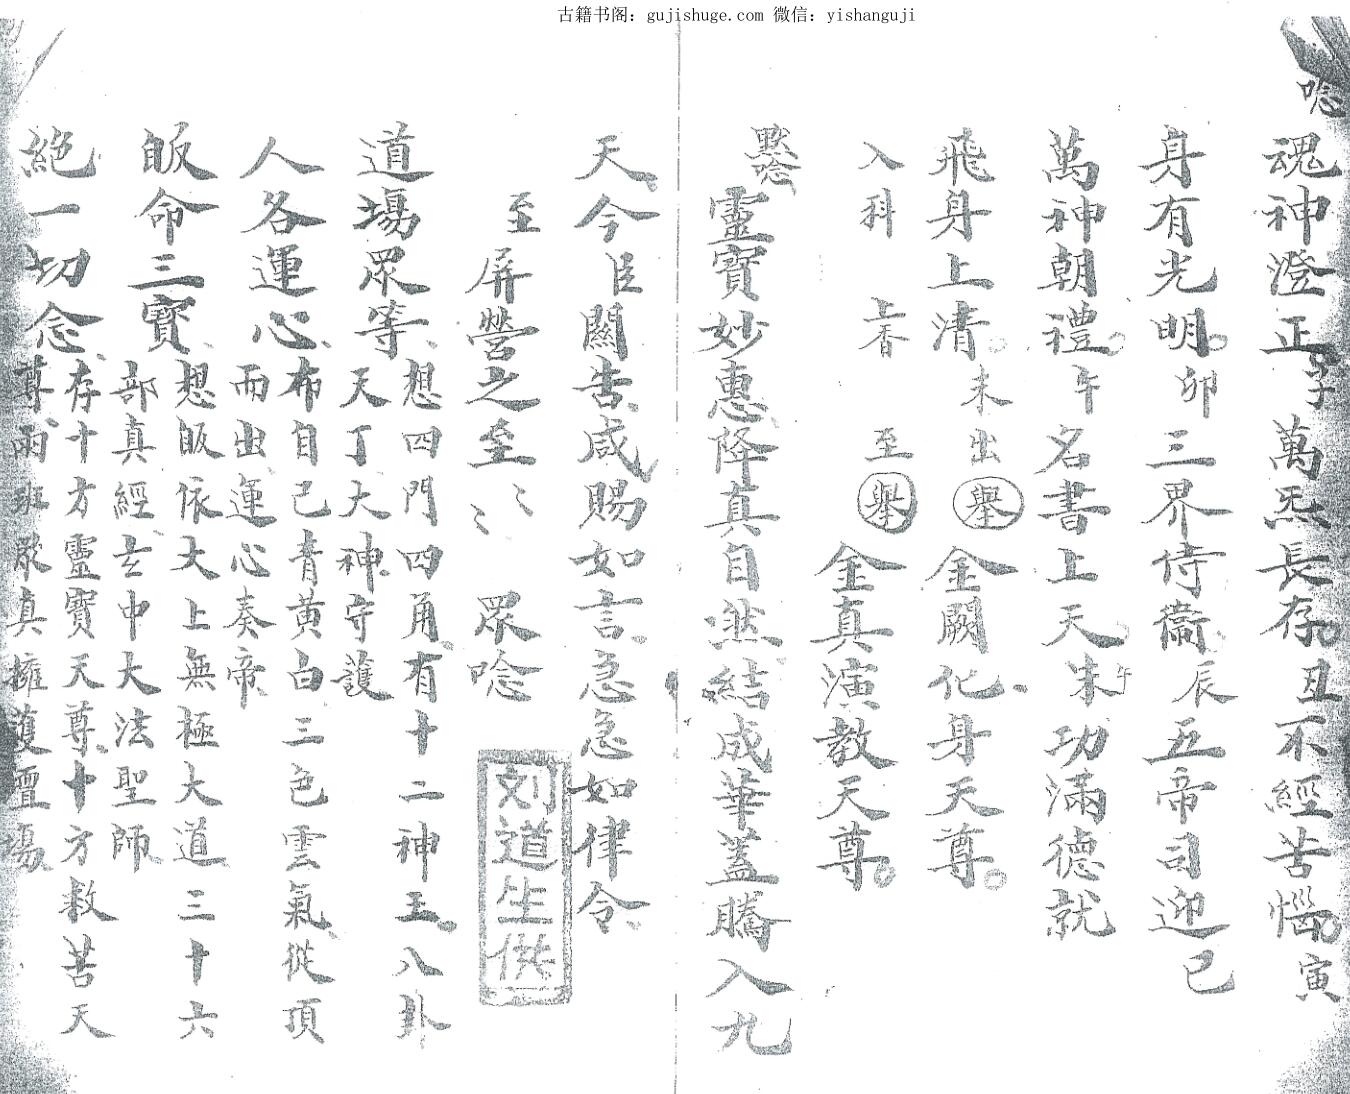 古籍书阁：gujishuge.com 微信：yishanguji
唸
魂神澄正子萬炁長存丑不經苦惱寅
身有光明卯三界侍衛辰五帝司迎巳
萬神朝禮午名書上天未午功滿德就
飛身上清未出舉金闕化身天尊
入科 上香 至舉金真演教天尊
默念靈寶妙惠降真自然結成華蓋騰入九
天今臣關告咸賜如言急急如律令
至屏營之至〻〻 眾唸
刘道生供
道場眾等想四門四角有十二神王八卦
天丁大神守護
人各運心布自己青黃白三色雲氣從頂
而出運心奏帝
皈命三寶想皈依大上無極大道三十六
部真經玄中大法聖師
絕一切念存十方靈寶天尊十方救苦天
尊兩班眾真擁護壇場